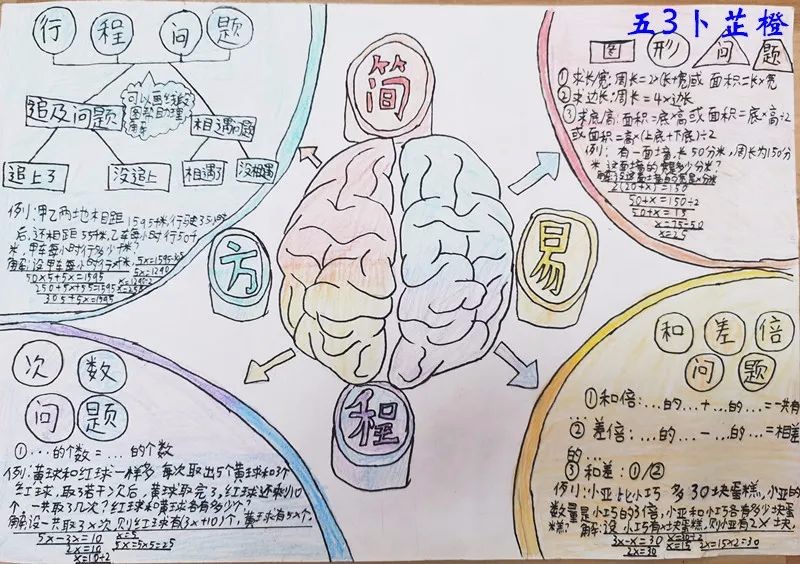 五3卜芷橙
简
易
方
程
行程问题
追及问题
可以画线段
图帮助理
解
相遇问题
追上了
没追上
相遇了
没相遇
例:甲乙两地相距1595千米,行驶3.5小时
后,还相距55千米,乙车每小时行50千
米,甲车每小时行多少千米?
解:设甲车每小时行x千米,
图形问题
①求长/宽:周长=2×(长+宽)或 面积=长×宽
②求边长:周长=4×边长
③求底/高:面积=底×高或面积=底×高÷2
或面积=高×(上底+下底)÷2
例:有一面墙,长50分米,周长为150分
米,这面墙的宽是多少分米?
2(50+x)=150
50+x=150÷2
50+x=75
x=75-50
x=25
次数问题
①…的个数=…的个数
例:黄球和红球一样多 每次取出5个黄球和3个
红球,取了若干次后,黄球取完了,红球还剩10
个,一共取了几次?红球和黄球各有多少个?
解:设一共取了x次,则红球有(3x+10)个,黄球有5x个.
5x-3x=10
x=5
2x=10
5x=5×5=25
x=10÷2
和差倍
问题
①和倍:…的…+…的…=一共有
②差倍:…的…-…的…=相差
的…
③和差:①/②
例:小亚比小巧多30块蛋糕,小亚的
数量是小巧的3倍,小亚和小巧各有多少块蛋
糕?
3x-x=30
x=30÷2
2x=30
x=15
2x=15×2=30